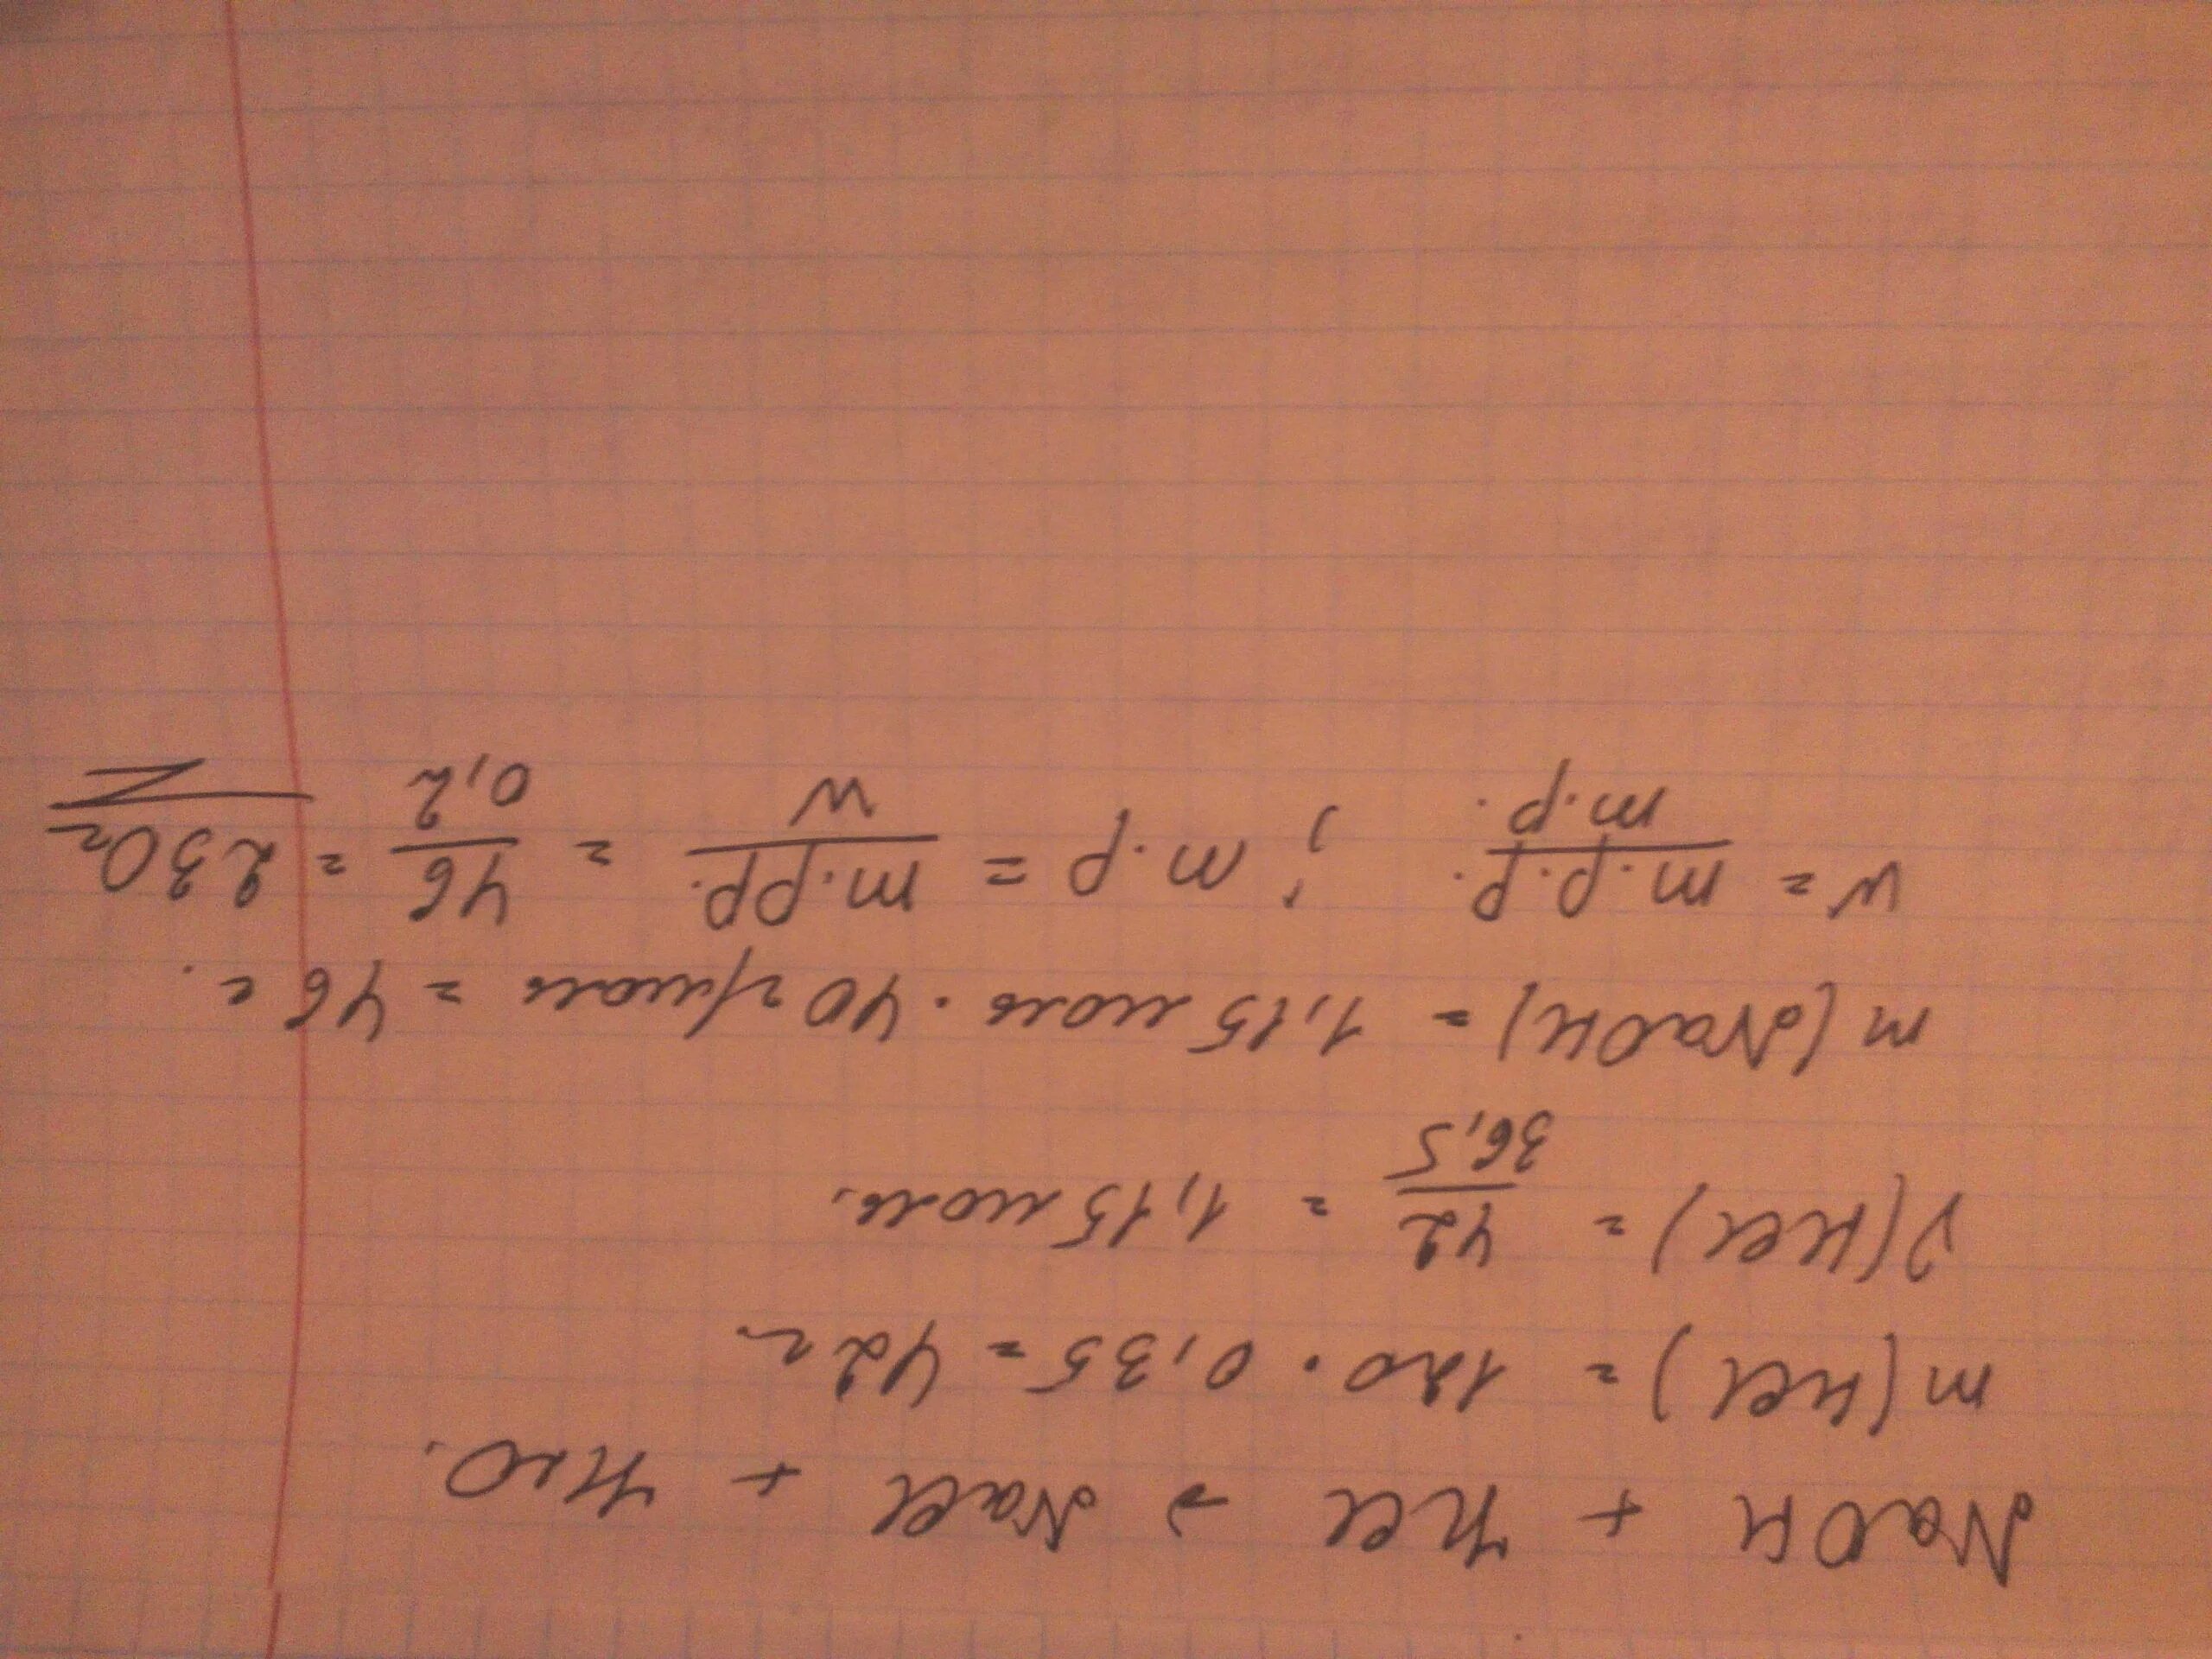 NaOH + HCl → NaCl + H2O.
m(HCl) = 120 · 0,35 = 42 г
ν(HCl) = 42/36,5 = 1,15 моль.
m(NaOH) = 1,15 моль · 40 г/моль = 46 г.
w = m.р.р./m.р. ; m.р = m.рр./w = 46/0,2 = 230г